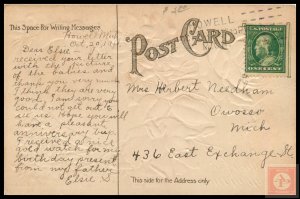 This Space for Writing Messages
Howell Mich
Oct. 20, 19
Dear Elsie
received your letter
with the picture
of the babies and
thank you very much
I think they are very
good, I am sorry you
could not get out to
see us. Hope you will
have a pleasant
anniversary bday
I received a nice
gold watch for my
birthday present
from my father
Elsie S
POST CARD
HOWELL
ONE CENT
Mrs Herbert Needham
Owosso
Mich
436 East Exchange St
This side for the Address only